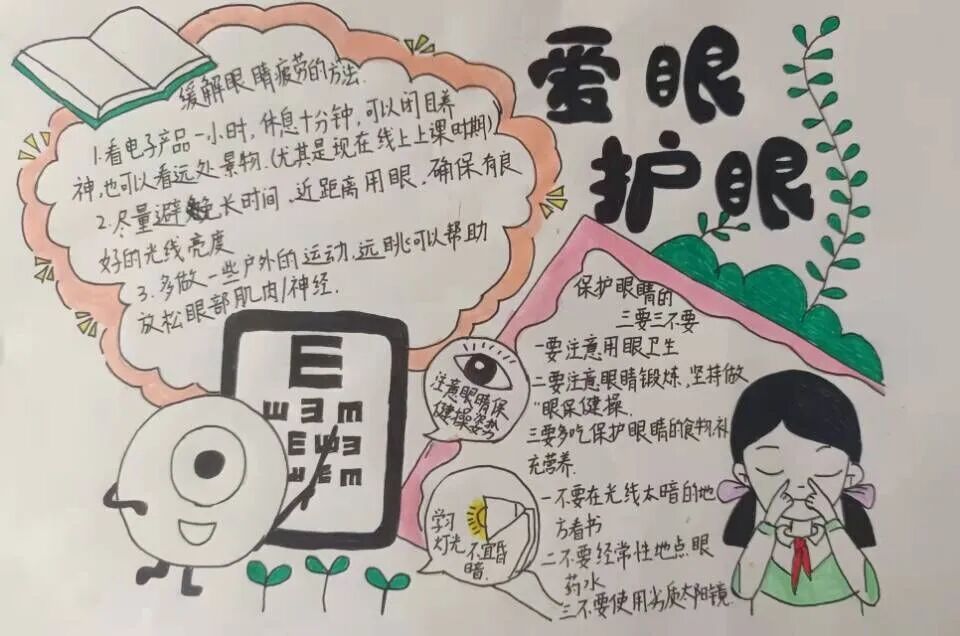 爱眼
护眼
缓解眼睛疲劳的方法.
1.看电子产品一小时,休息十分钟,可以闭目养
神,也可以看远处景物.(尤其是现在线上上课时期)
2.尽量避免长时间,近距离用眼,确保有良
好的光线亮度
3.多做一些户外的运动,远眺可以帮助
放松眼部肌肉/神经.
E
保护眼睛的
三要三不要
一要注意用眼卫生
二要注意眼睛锻炼,坚持做
"眼保健操.
三要多吃保护眼睛的食物,补
充营养.
一不要在光线太暗的地
方看书
二不要经常性地点眼
药水
三不要使用劣质太阳镜.
注意眼睛保
健操姿势
学习
灯光不宜昏
暗.